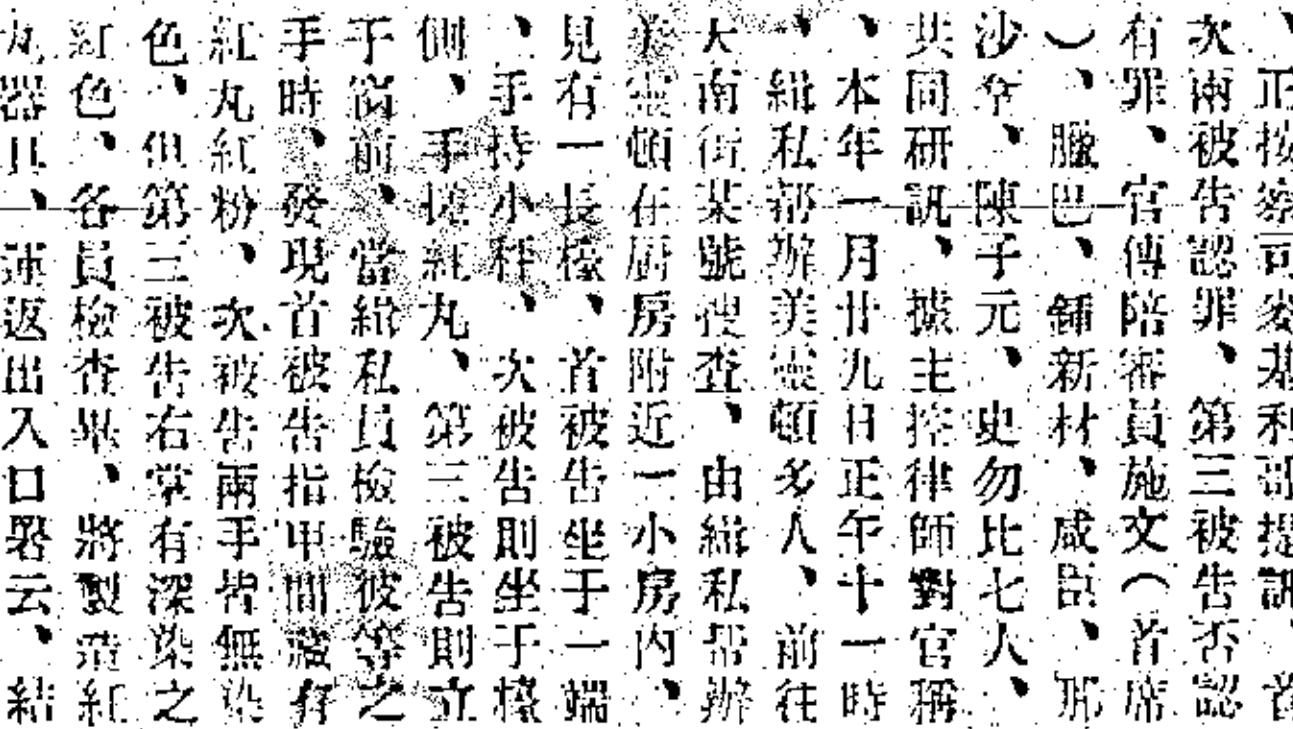 、正按察司麥基利哥提訊、首
次兩被告認罪、第三被告否認
有罪、官傳陪審員施文（首席
）、臘巴、鍾新材、咸、那
沙、陳子元、史勿比七人、
共同研訊、據主控律師對官稱
、本年一月廿九日正午十一時
、緝私部辦美靈頓多人、前往
大南街某號搜查、由緝私帮辦
美靈頓在厨房附近一小房内、
見有一長檯、首被告坐于一端
、手持小秤、次被告則坐于檯
側、手搓紅丸、第三被告則立
于窗前、當緝私員檢驗彼等之
手時、發現首被告指甲間藏有
紅丸紅粉、次被告兩手皆無染
色、但第三被告右掌有深染之
紅色、各員檢查畢、將製造紅
丸器具、速返出入口署云、結